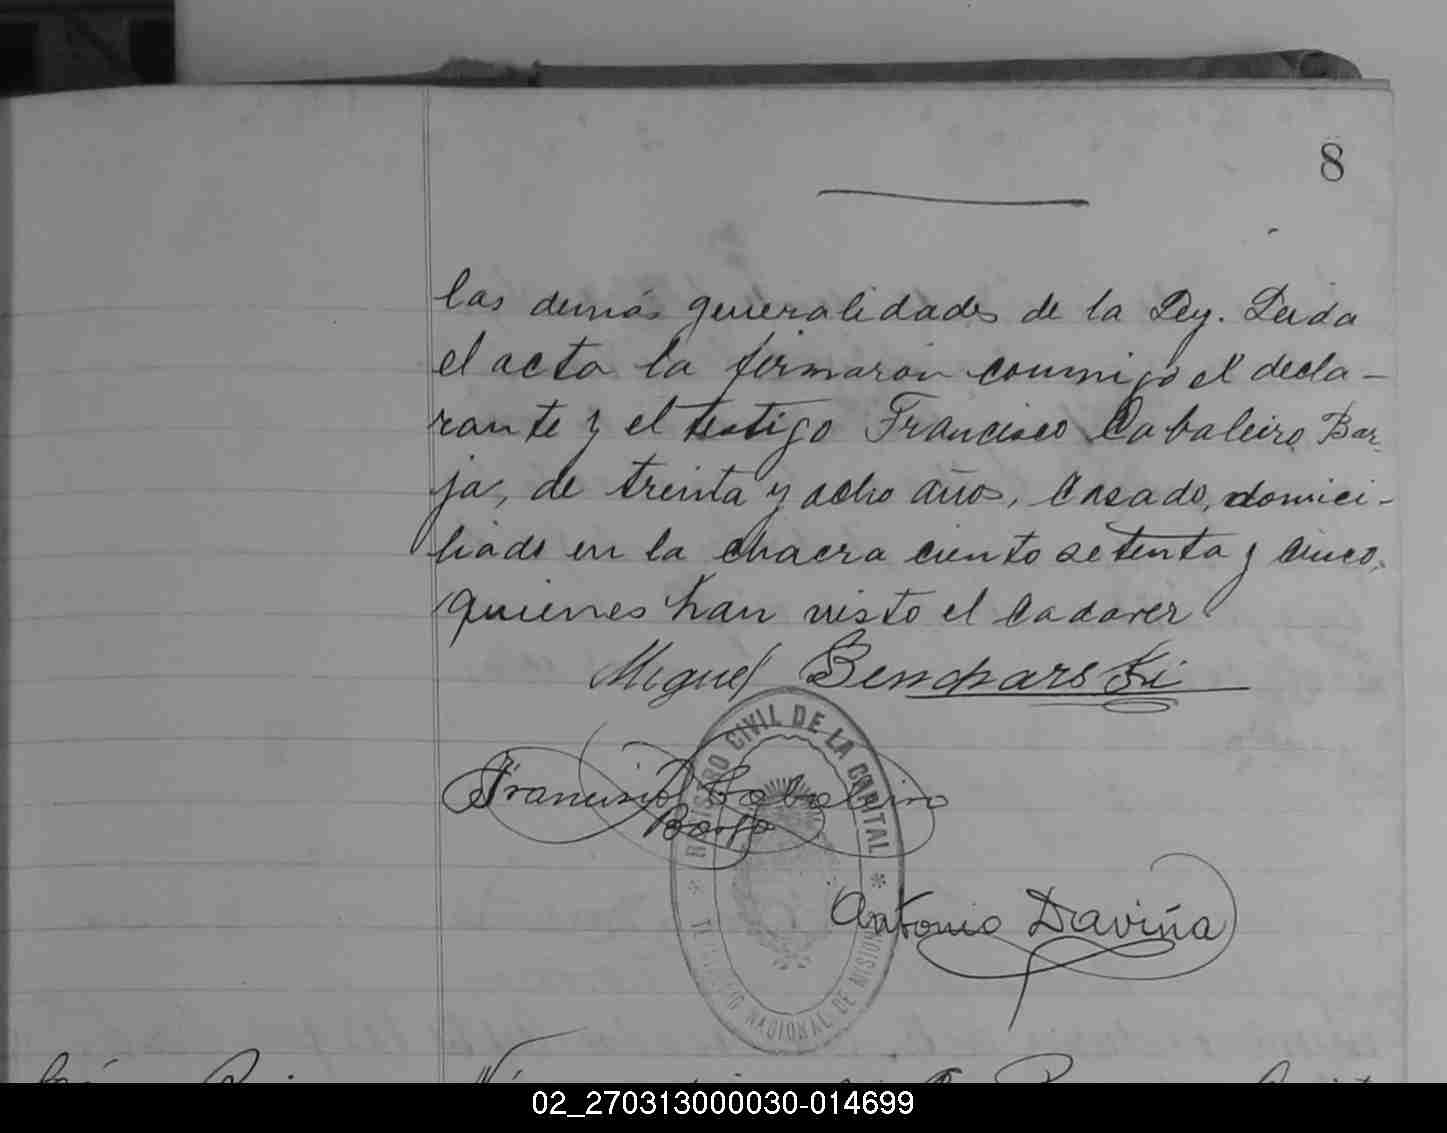 8
las demás generalidades de la Ley. Leida
el acta la firmaron conmigo el decla-
rante y el testigo Francisco Cabaleiro Bar-
ja, de treinta y ocho años, casado, domici-
liado en la chacra ciento setenta y cinco,
quienes han visto el cadaver
Miguel
Francisco Cabaleiro
Barja
Antonio Daviña
REGISTRO CIVIL DE LA CAPITAL
* TERRITORIO NACIONAL DE MISIONES *
02_270313000030-014699